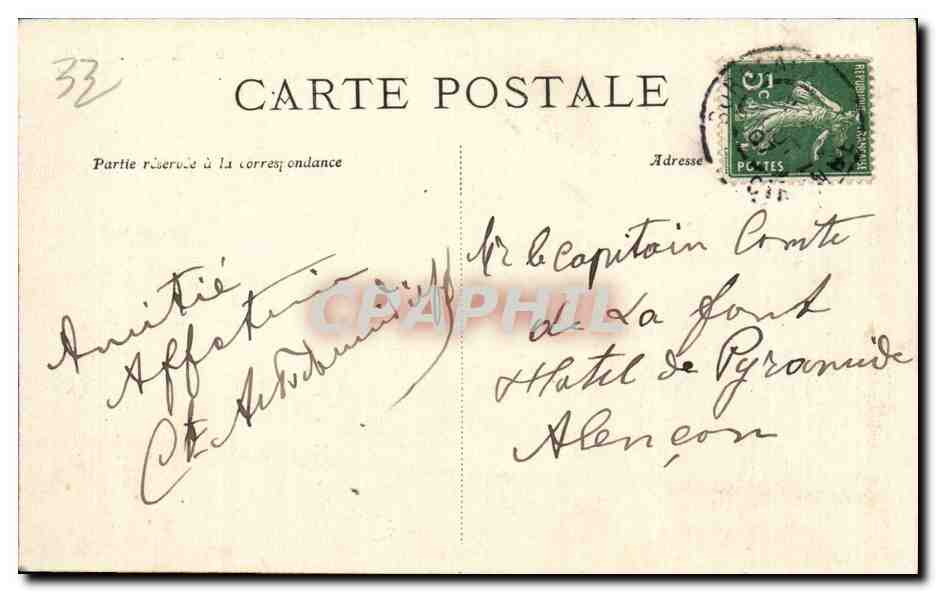 33
CARTE POSTALE
Partie réservée à la correspondance
Adresse
5c
REPUBLIQUE FRANÇAISE
POSTES
Amitié
Mr le Capitain Comte
de La font
Hotel de Pyramide
Alençon
CPAPHIL